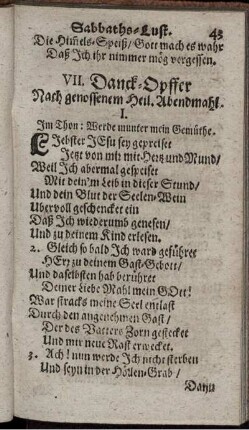 Sabbaths-Lust. 43
Die Him̃els-Speiß/ Gott mach es wahr
Daß Jch ihr nimmer mög vergessen.
VII. Danck-Opffer
Nach genossenem Heil. Abendmahl.
I.
Jm Thon: Werde munter mein Gemüthe.
LJebster JEsu sey gepreiset
Jetzt von mir mit Hertz und Mund/
Weil Jch abermal gespeiset
Mit dein'm Leib in dieser Stund/
Und dein Blut der Seelen-Wein
Ubervoll geschencket ein
Daß Jch wiederumb genesen/
Und zu deinem Kind erlesen.
2. Gleich so bald Jch ward geführet
HErr zu deinem Gast-Gebott/
Und daselbsten hab berühret
Deiner Liebe Mahl mein GOtt!
War stracks meine Seel entlast
Durch den angenehmen Gast/
Der des Vatters Zorn gestecket
Und mir neue Rast erwecket.
3. Ach! nun werde Jch nicht sterben
Und seyn in der Höllen-Grab/
Dann